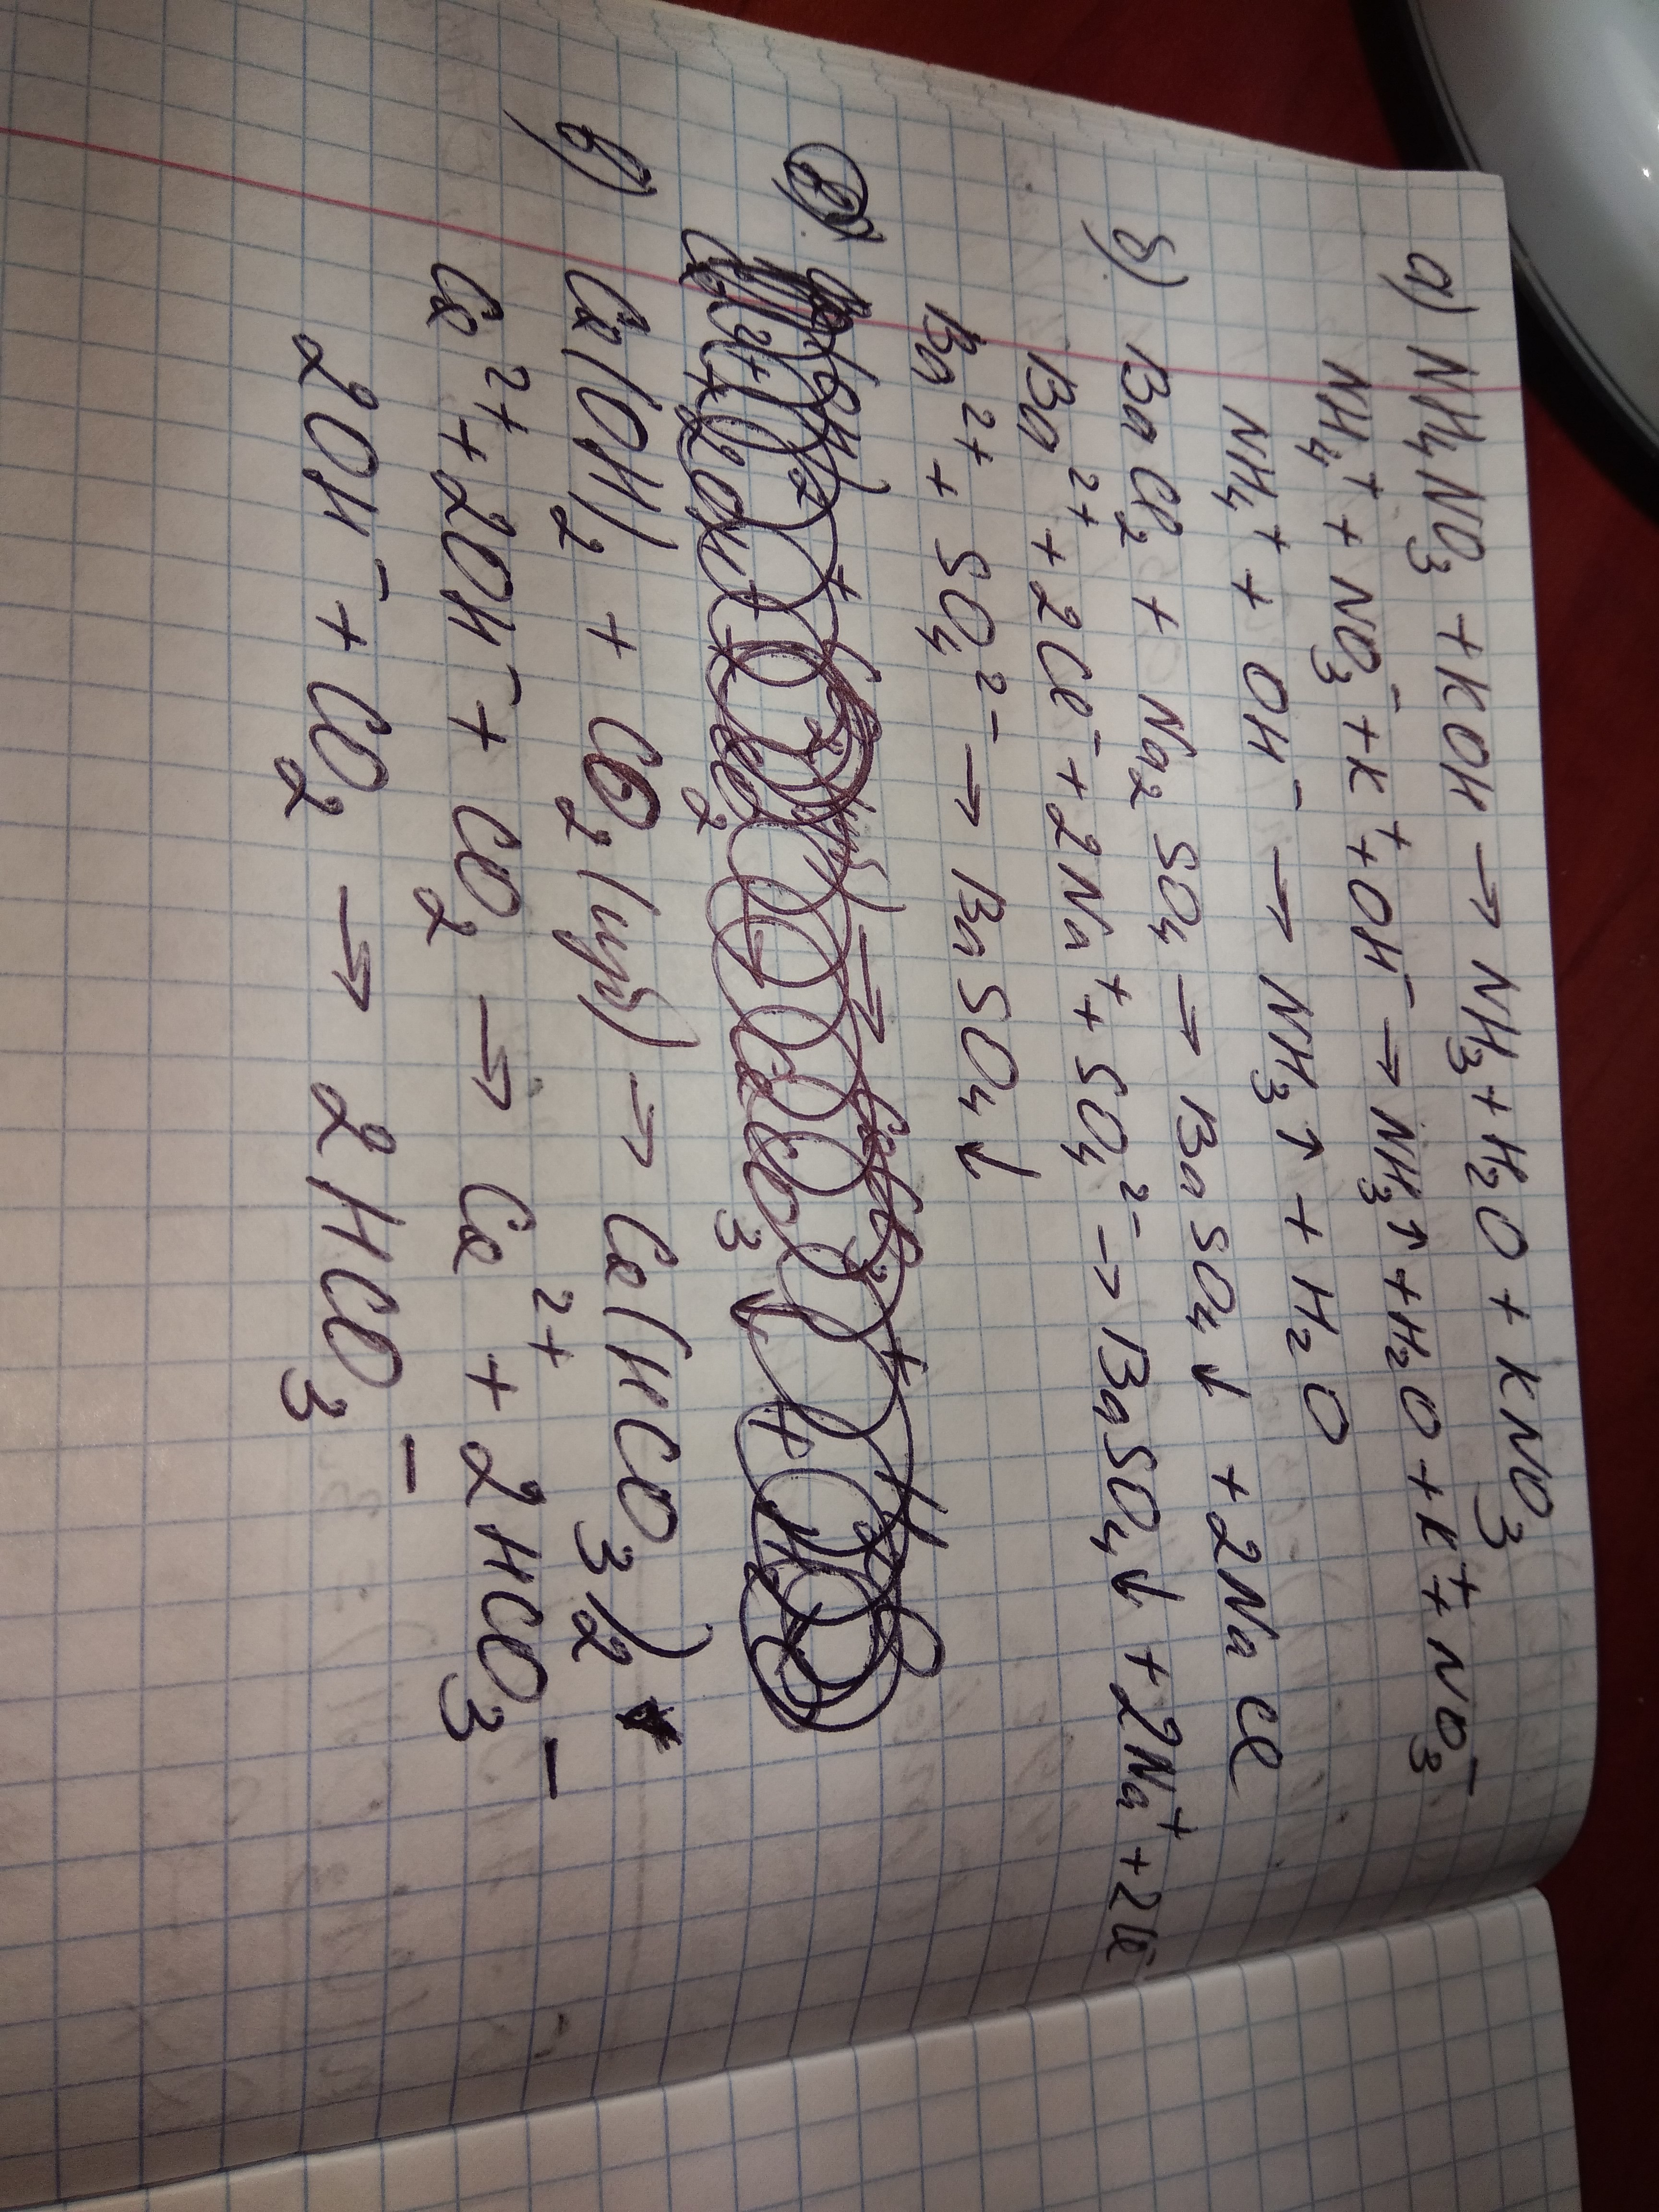 а) NH₄NO₃ + KOH → NH₃ + H₂O + KNO₃
NH₄⁺ + NO₃⁻ + K⁺ + OH⁻ → NH₃↑ + H₂O + K⁺ + NO₃⁻
NH₄⁺ + OH⁻ → NH₃↑ + H₂O
б) BaCl₂ + Na₂SO₄ → BaSO₄↓ + 2NaCl
Ba²⁺ + 2Cl⁻ + 2Na⁺ + SO₄²⁻ → BaSO₄↓ + 2Na⁺ + 2Cl⁻
Ba²⁺ + SO₄²⁻ → BaSO₄↓
в) Ca(OH)₂ + CO₂(изб) → Ca(HCO₃)₂
Ca²⁺ + 2OH⁻ + CO₂ → Ca²⁺ + 2HCO₃⁻
2OH⁻ + CO₂ → 2HCO₃⁻